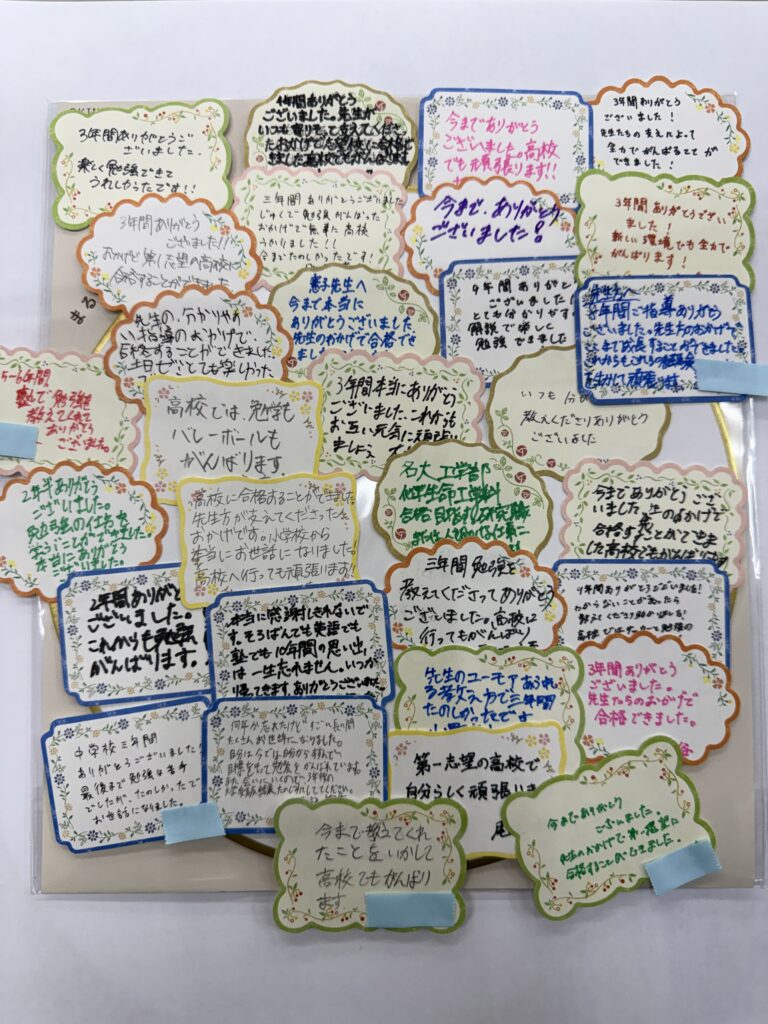 3年間ありがとうご
ざいました.
楽しく勉強できて
うれしかったです!!
1年間ありがとう
ございました。先生が
いつも寄りそって支えてくださ
ったおかげで
今までありがとう
ございました。高校
でも頑張ります!!
3年間ありがとう
ございました!
先生たちの支えによって
全力でがんばることが
できました!
3年間ありがとう
ございました!!
おかげで第1志望の高校に
合格することができました
三年間ありがとうございました
じゅくで勉強がんばった
おかげで無事に高校
うかりました!!
今までたのしかったです!
今まで、ありがとう
ございました!
3年間ありがとうござい
ました!
新しい環境でも全力で
がんばります!
まる
先生の、分かりやす
い指導のおかげで、
合格することができました
土日ゼミとても楽しかった
恵子先生へ
今まで本当に
ありがとうございました
先生のおかげで合格でき
ました
ございました
とても分かりやすい
解説で楽しく
勉強できました
先生方へ
年間ご指導ありがとう
ございました。先生方のおかげで
ここまで成長することができました
これからもこれらの経験
を生かして頑張ります
5~6年間
塾で勉強を
教えてくれて
ありがとう
ございました。
高校では、勉学も
バレーボールも
がんばります.
3年間本当にありがとう
ございました、これからも
お互い元気に頑張り
ましょう
いつも分か
教えてくださりありがとう
ございました
2年半ありがとう
ございました。
勉強の仕方を
学ぶことができました。
本当にありがとう
ございました
高校に合格することができました
先生方が支えてくださった
おかげです。小学校から
本当にお世話になりました。
高校へ行っても頑張ります!!
名大 工学部
化学生命工学科
合格
今までありがとうござ
いました。先生のおかげで
合格することができま
した高校でもがんばります
2年間ありがとう
ございました。
これからも勉強
がんばります。
本当に感謝しきれないで
す。そろばんでも英語でも
塾でも10年間の思い出
は一生忘れません。いつか
帰ってきます。ありがとうございました
三年間勉強を
教えてくださってありがとう
ございました。高校に
行ってもがんばり
年間ありがとうございました!
わからないことがあったら
教えてくださり助かりました!
高校ではサッカーと勉強の
先生のユーモアあふれ
る教え方で三年間
たのしかったです
3年間ありがとう
ございました。
先生たちのおかげで
合格できました。
中学校三年間
ありがとうございました!
最後まで勉強は苦手
でしたが、たのしかったで
お世話になりました。
何年か忘れたけど すごい長い間
たくさんお世話になりました。
第一志望の高校で
自分らしく頑張りま
今まで教えてくれ
たことをいかして
高校でもがんばり
ます
今までありがとう
ございました。
先生のおかげで第一志望に
合格することができました。